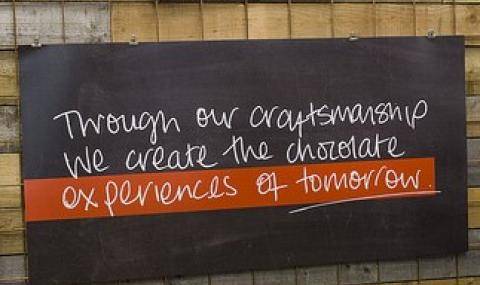 Through our craftsmanship
We create the chocolate
experiences of tomorrow.